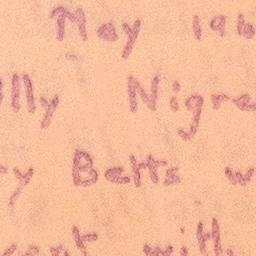 May 196
lly Nigre
y Betts w
ent will